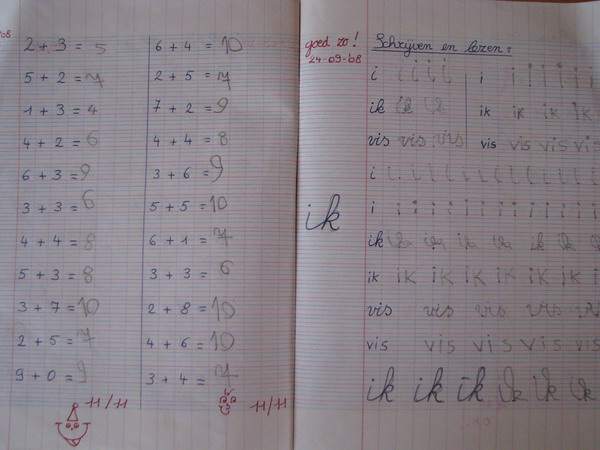 2 + 3 = 5
5 + 2 = 7
1 + 3 = 4
4 + 2 = 6
6 + 3 = 9
3 + 3 = 6
4 + 4 = 8
5 + 3 = 8
3 + 7 = 10
2 + 5 = 7
9 + 0 = 9
11/11
6 + 4 = 10
2 + 5 = 7
7 + 2 = 9
4 + 4 = 8
3 + 6 = 9
5 + 5 = 10
6 + 1 = 7
3 + 3 = 6
2 + 8 = 10
4 + 6 = 10
3 + 4 = 7
11/11
goed zo!
24-09-08
Schrijven en lezen:
i i i i i i i i i i i
ik ik ik ik ik ik ik
vis vis vis vis vis vis vis
i i i i i i i i i i i i i
ik
i i i i i i i i i i i i i
ik ik ik ik ik ik ik ik
ik ik ik ik ik ik ik
vis vis vis vis vis
vis vis vis vis vis
ik ik ik ik ik ik